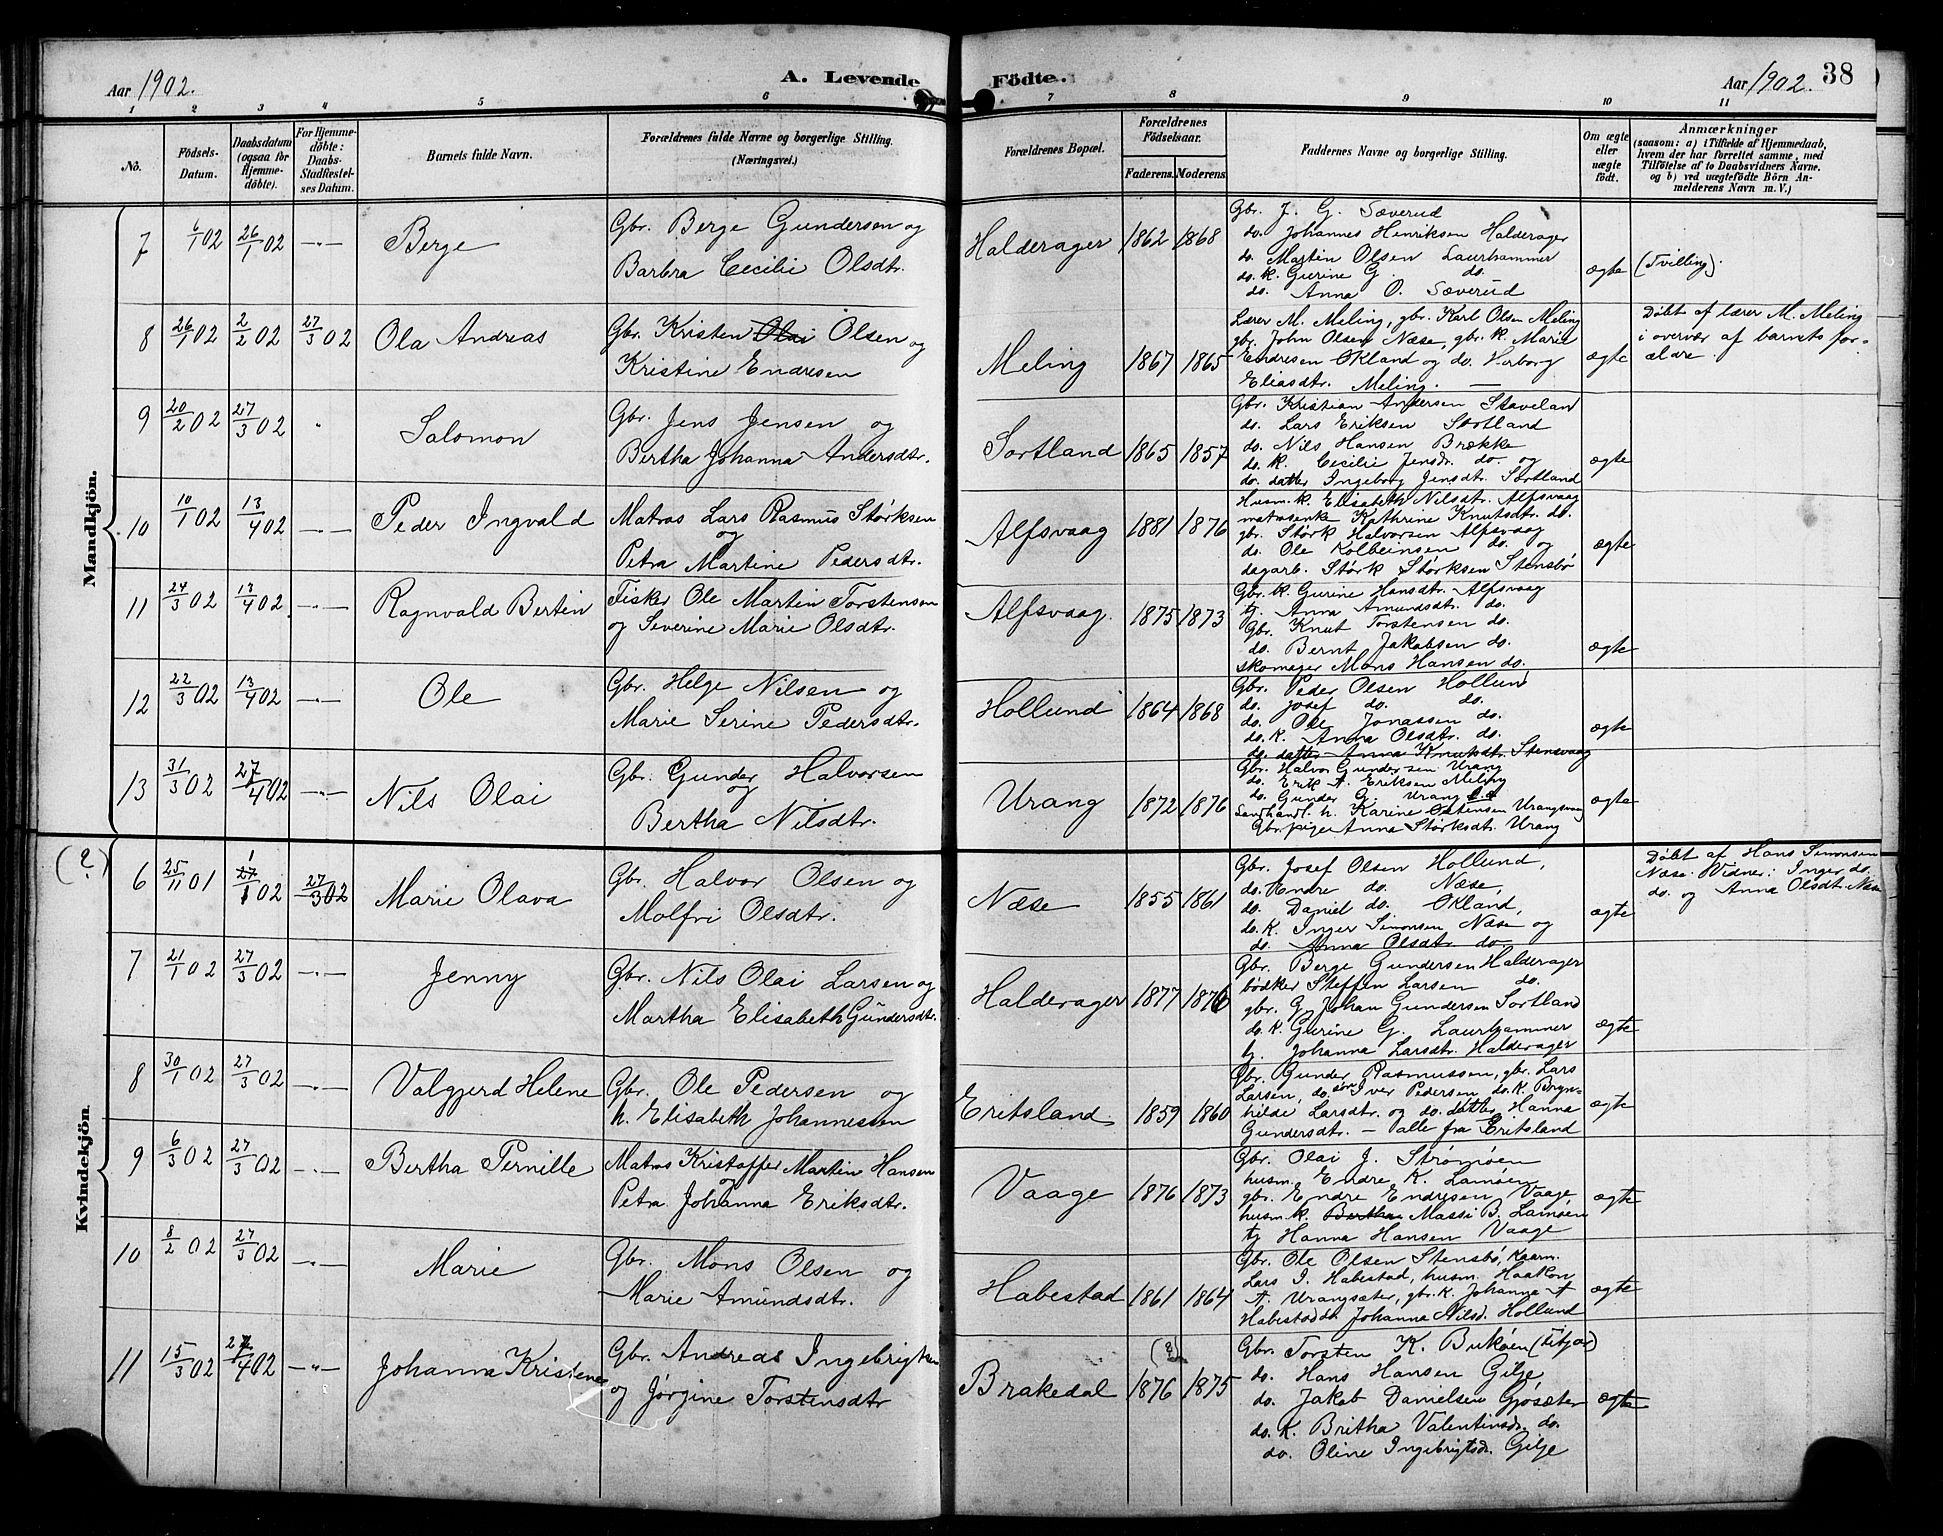 Aar 1902. A. Levende Födte. Aar 1902. 38
1 2 3 4 5 6 7 8 9 10 11
No. Födsels-Datum. Daabsdatum (ogsaa for Hjemmedöbte). For Hjemmedöbte: Daabs-Stadfæstelses Datum. Barnets fulde Navn. Forældrenes fulde Navne og borgerlige Stilling. (Næringsvei.) Forældrenes Bopæl. Forældrenes Födselsaar. Faderens. Moderens. Faddernes Navne og borgerlige Stilling. Om ægte eller uægte födt. Anmærkninger (saasom: a) i Tilfælde af Hjemmedaab, hvem der har forrettet samme, med Tilföielse af to Daabsvidners Navne. og b) ved uægtefödte Börn Anmelderens Navn m. V.)
Mandkjön.
7 6/1 02 26/1 02 -"- Berge
Gbr. Berge Gundersen og
Barbra Cecilie Olsdtr.
Halderager 1862 1868
Gbr. J. G. Sæverud
do. Johannes Henriksen Halderager
do. Martin Olsen Laurhammer
do. k. Gurine G. do.
do. Anna O. Sæverud
ægte (Tvilling).
8 26/1 02 2/2 02 27/3 02 Ola Andreas
Gbr. Kristen Olai Olsen og
Kristine Endresen
Meling 1867 1865
Lærer M. Meling, gbr. Karl Olsen Meling
gbr. John Olsen Næse, gbr. k. Marie
Endresen Økland og do. Vorborg
Eliasdtr. Meling. —
ægte
Døbt af lærer M. Meling
i overvær af barnets for-
ældre.
9 20/2 02 27/3 02 " Salomon
Gbr. Jens Jensen og
Bertha Johanna Andersdtr.
Sortland 1865 1857
Gbr. Kristian Andersen Stavelan
do. Lars Eriksen Sortland
do. Nils Hansen Brække
do. k. Cecilie Jensdr. do. og
do. datter Ingeborg Jensdtr. Sortland
ægte
10 10/1 02 13/4 02 -"- Peder Ingvald
Matros Lars Rasmus Størksen
og
Petra Martine Pedersdtr.
Alfsvaag 1881 1876
Husm. k. Elisabeth Nilsdtr. Alfsvaag
matrosenke Kathrine Knutsdtr. do.
gbr. Størk Halvorsen Alfsvaag
do. Ole Kolbeinsen do. og
dagarb. Størk Størksen Stensbø
ægte
11 24/3 02 13/4 02 -"- Ragnvald Bertin
Fisker Ole Martin Torstensen
og Severine Marie Olsdtr.
Alfsvaag. 1875 1873
Gbr. k. Gurine Hansdtr. Alfsvaag
tj. Anna Amundsdtr. do.
Gbr. Knut Torstensen do.
do. Bernt Jakobsen do.
skomager Mons Hansen do.
ægte
12 22/3 02 13/4 02 -"- Ole
Gbr. Helge Nilsen og
Marie Serine Pedersdtr.
Hollund 1864 1868
Gbr. Peder Olsen Hollund
do. Josef do. do.
do. Ole Jonassen do.
do. k. Anna Olsdtr. do.
do. datter Anna Knutsdtr. Stensvaag
ægte
13 31/3 02 27/4 02 -"- Nils Olai
Gbr. Gunder Halvorsen
og
Bertha Nilsdtr.
Urang 1872 1876
Gbr. Halvor Gundersen Urang
do. Erik A. Eriksen Meling
do. Gunder G. Urang
Landhandl. h. Karine Ostensen Urangsvaag
Gbr. pige Anna Størksdtr. Urang
ægte
Kvindekjön.
(?) 6 25/11 01 1/1 02 27/3 02 Marie Olava
Gbr. Halvor Olsen og
Molfri Olsdtr.
Næse 1855 1861
Gbr. Josef Olsen Hollund,
do. Endre do. Næse,
do. Daniel do. Økland,
do. k. Inger Simonsen Næse og
do. Anna Olsdtr. do
ægte
Døbt af Hans Simonsen
Næse. Vidner: Inger do.
do. og Anna Olsdt. Næse
7 21/1 02 27/3 02 -"- Jenny
Gbr. Nils Olai Larsen og
Martha Elisabeth Gundersdtr.
Halderager 1877 1876
Gbr. Berge Gundersen Halderager
bødker Steffen Larsen do.
gbr. G. Johan Gundersen Sortland
do. k. Gurine G. Laurhammer
tj. Johanna Larsdtr. Halderager
ægte
8 30/1 02 27/3 02 -"- Valgjerd Helene
Gbr. Ole Pedersen og
h. Elisabeth Johannessen
Eritsland 1859 1860
Gbr. Gunder Rasmussen, gbr. Lars
Larsen, do. søn Iver Pedersen, do. k. Bryn-
hilde Larsdtr. og do. datter Hanna
Gundersdtr. — alle fra Eritsland
ægte
9 6/3 02 27/3 02 -"- Bertha Pernille
Matros Kristoffer Martin Hansen
og
Petra Johanna Eriksdtr.
Vaage 1876 1873
Gbr. Olai J. Strømøen
husm. Endre K. Lamøen
gbr. Endre Endresen Vaage
husm. k. Bertha Massi B. Lamøen
tj Hanna Hansen Vaage
ægte
10 8/2 02 27/3 02 -"- Marie
Gbr. Mons Olsen og
Marie Amundsdtr.
Habestad 1861 1864
Gbr. Ole Olsen Stensbø, kaarm.
Lars I. Habestad, husm. Haakon
A. Urangsæter, gbr. k. Johanne A
Habestad Johanna Nilsd. Hollund
ægte
11 15/3 02 27/4 02 -"- Johanna Kristene
Gbr. Andreas Ingebrigtsen
og Jørgine Torstensdtr
Brakedal 1876 (?) 1875
Gbr. Torsten K. Bukøen (Fitjar)
do. Hans Hansen Gilje
do. Jakob Danielsen Gjøsæter
do. k. Britha Valentinsd. do.
do. Oline Ingebrigtsd. Gilje
ægte